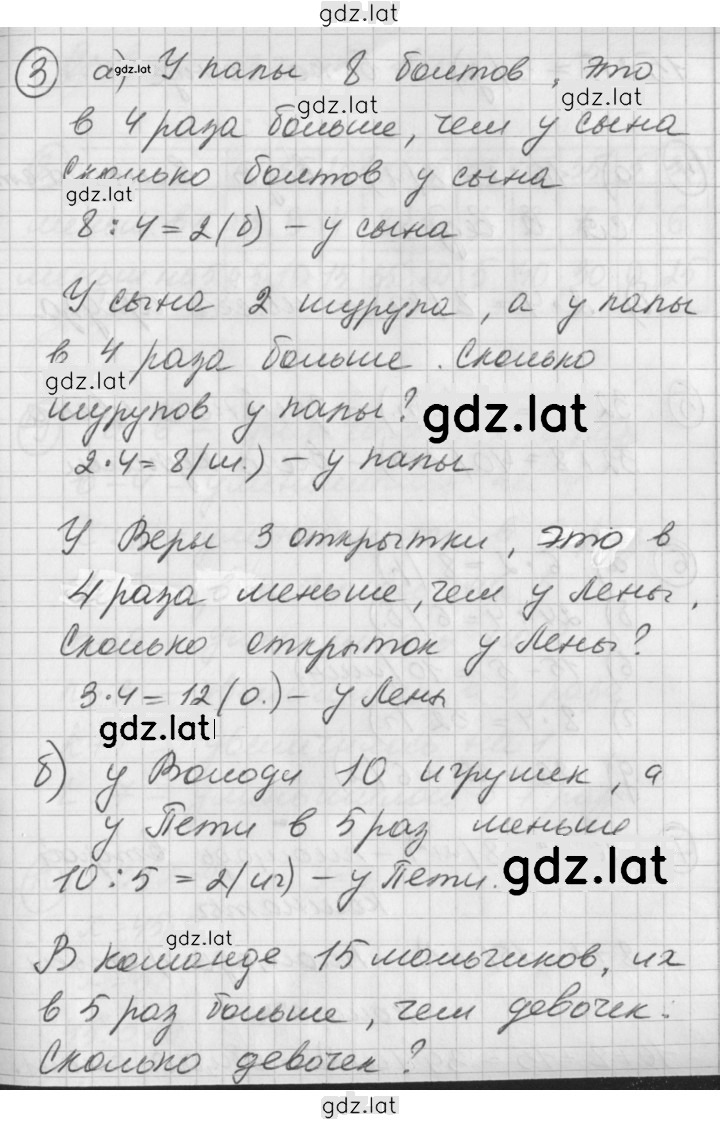 gdz.lat
3 а) gdz.lat У папы 8 болтов, это
gdz.lat gdz.lat
в 4 раза больше, чем у сына
Сколько болтов у сына
gdz.lat
8 : 4 = 2 (б) – у сына
У сына 2 шурупа, а у папы
в 4 раза больше. Сколько
gdz.lat
шурупов у папы? gdz.lat
2 · 4 = 8 (ш.) – у папы
У Веры 3 открытки, это в
4 раза меньше, чем у Лены.
Сколько открыток у Лены?
3 · 4 = 12 (о.) – у Лены
gdz.lat
б) у Володи 10 игрушек, а
у Пети в 5 раз меньше
10 : 5 = 2 (иг) – у Пети. gdz.lat
gdz.lat
В команде 15 мальчиков, их
в 5 раз больше, чем девочек.
Сколько девочек?
gdz.lat